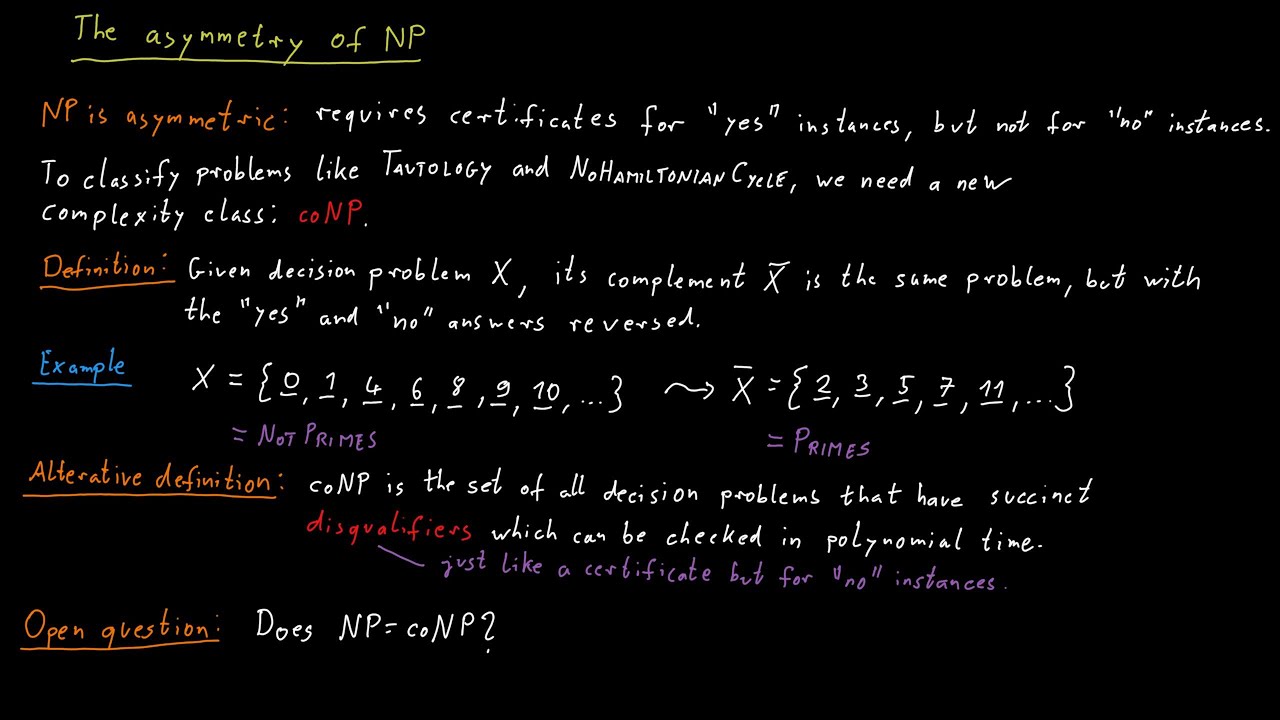 The asymmetry of NP
NP is asymmetric: requires certificates for "yes" instances, but not for "no" instances.
To classify problems like TAUTOLOGY and NOHAMILTONIANCYCLE, we need a new
complexity class: coNP.
Definition: Given decision problem X, its complement X̅ is the same problem, but with
the "yes" and "no" answers reversed.
Example X = {0, 1, 4, 6, 8, 9, 10, ...} ⤳ X̅ = {2, 3, 5, 7, 11, ...}
= NOT PRIMES = PRIMES
Alterative definition: coNP is the set of all decision problems that have succinct
disqualifiers which can be checked in polynomial time.
just like a certificate but for "no" instances.
Open question: Does NP = coNP?